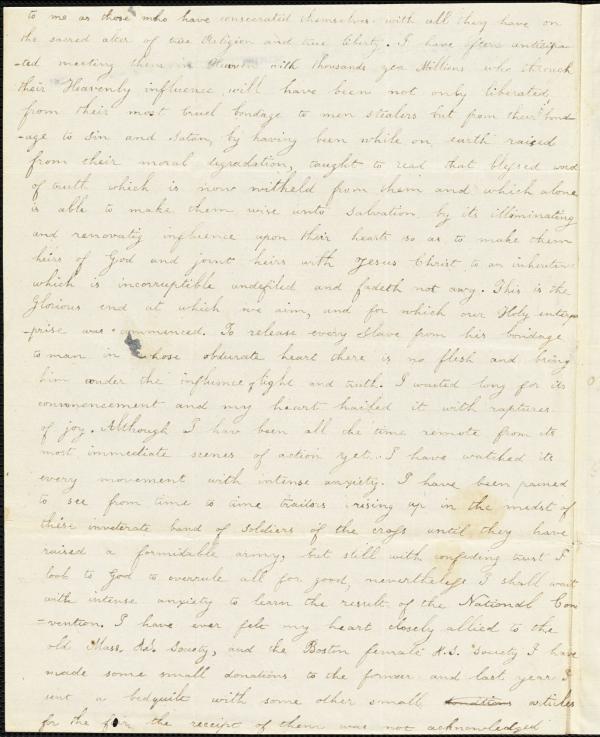 to me as those who have consecrated themselves with all they have on
the sacred alter of true Religion and true liberty. I have often anticipa-
-ted meeting them in Heaven with thousands yea Millions who through
their Heavenly influence will have been not only liberated,
from their most cruel bondage to men stealers but from their bond-
-age to sin and satan, by having been while on earth raised
from their moral degradation, taught to read that blessed word
of truth which is now witheld from them and which alone
is able to make them wise unto salvation by its illuminating
and renovatig influence upon their hearts so as to make them
heirs of God and joint heirs with Jesus Christ to an inheritan
which is incorruptible undefiled and fadeth not away. This is the
Glorious end at which we aim, and for which our Holy enter
-prise was commenced. To release every Slave from his bondage
to man in whose obdurate heart there is no flesh and bring
him under the influence of light and truth. I waited long for its
commencement and my heart hailed it with raptures
of joy. Although I hav been all the time remote from its
most immediate scenes of action yet I have watched its
every movement with intense anxiety. I have been pained
to see from time to time traitors rising up in the medst of
these inveterate band of Soldiers of the cross until they have
raised a formidable army, but still with confiding trust I
look to God to overrule all for good, nevertheless I shall wait
with intense anxiety to learn the result of the National Con
-vention. I have ever felt my heart closely allied to the
old Mass. Society, and the Boston female A.S. Society I have
made some small donations to the former and last year I
sent a bedquilt with some other small donations articles
for the the receipt of them was not acknowledged